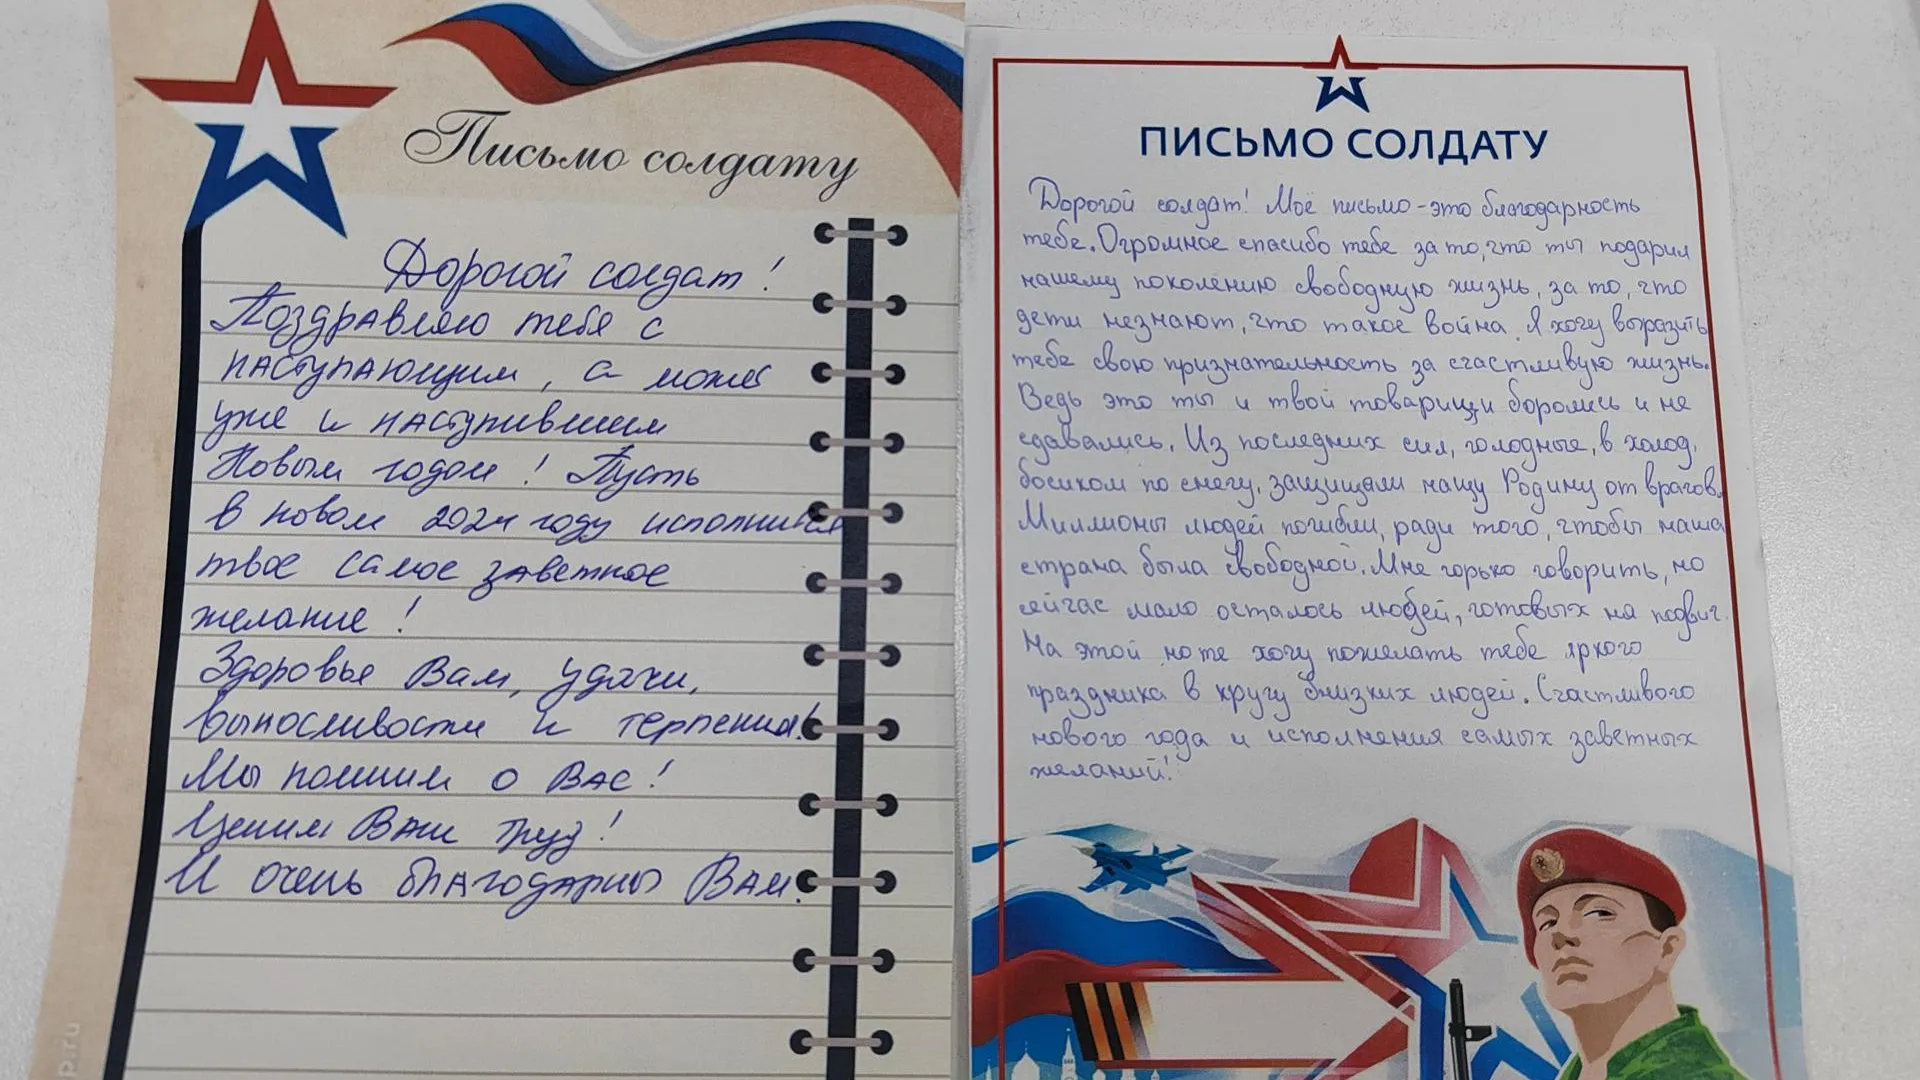 Письмо солдату
Дорогой солдат!
Поздравляю тебя с
наступающим, а может
уже и наступившим
Новым годом! Пусть
в новом 2024 году исполнится
твое самое заветное
желание!
Здоровье Вам, удачи,
выносливости и терпения!
Мы помним о Вас!
Ценим Ваш труд!
И очень благодарны Вам!
ПИСЬМО СОЛДАТУ
Дорогой солдат! Моё письмо - это благодарность
тебе. Огромное спасибо тебе за то, что ты подарил
нашему поколению свободную жизнь, за то, что
дети незнают, что такое война. Я хочу выразить
тебе свою признательность за счастливую жизнь.
Ведь это ты и твой товарищи боролись и не
сдавались. Из последних сил, голодные, в холод,
босиком по снегу, защищали нашу Родину от врагов.
Миллионы людей погибли, ради того, чтобы наша
страна была свободной. Мне горько говорить, но
сейчас мало осталось людей, готовых на подвиг.
На этой ноте хочу пожелать тебе яркого
праздника в кругу близких людей. Счастливого
нового года и исполнения самых заветных
желаний!